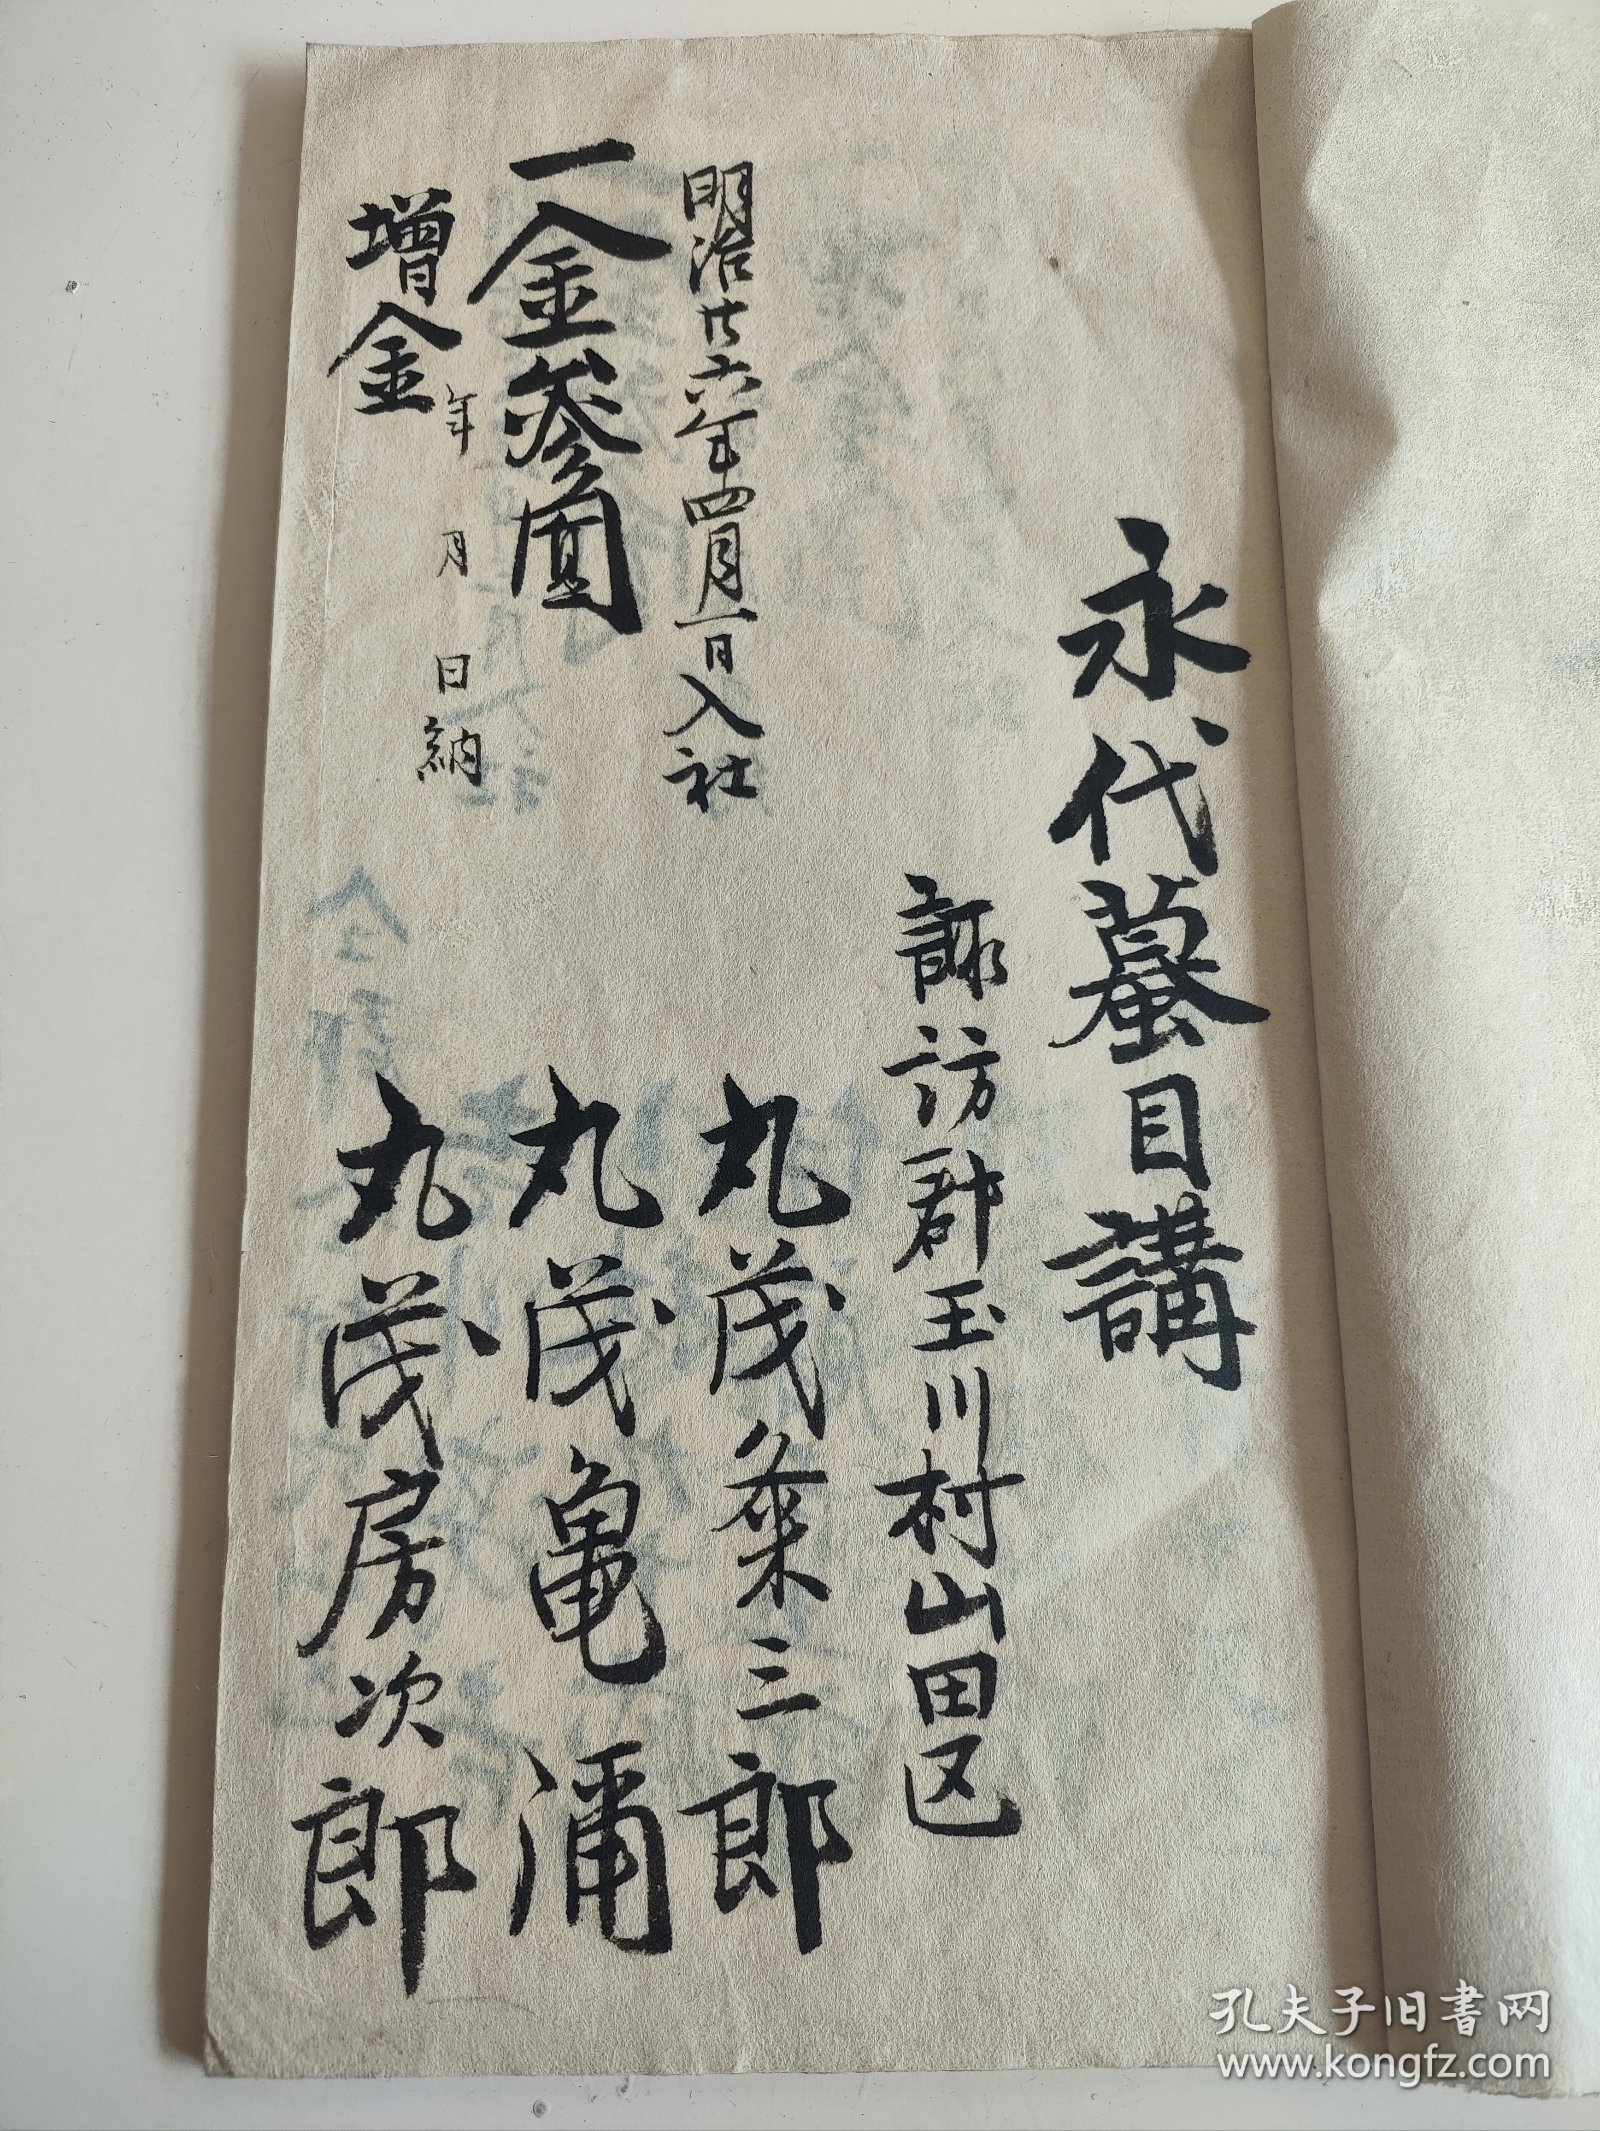 永代蟇目講
諏訪郡玉川村山田区
丸茂粂三郎
丸茂亀浦
丸茂房次郎
明治廿六年四月一日入社
一金参圓
増金
年 月 日納
孔夫子旧書网
www.kongfz.com